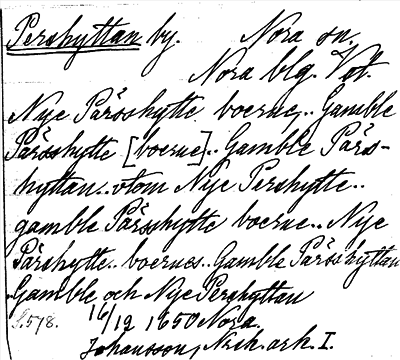 Pershyttan by. Nora sn.
Nora blg. Vst.
Nye Pärsshytte boerne.. Gamble
Pärsshytte [boerne].. Gamble Pärs-
hyttan.. otom Nye Pershytte..
gamble Pärsshytte boerne.. Nye
Pärshytte.. boernes.. Gamble Pärsshyttan
Gamble och Nye Pershyttan
S. 578. 16/12 1650 Nora
Johansson, Nsk. ark. I.